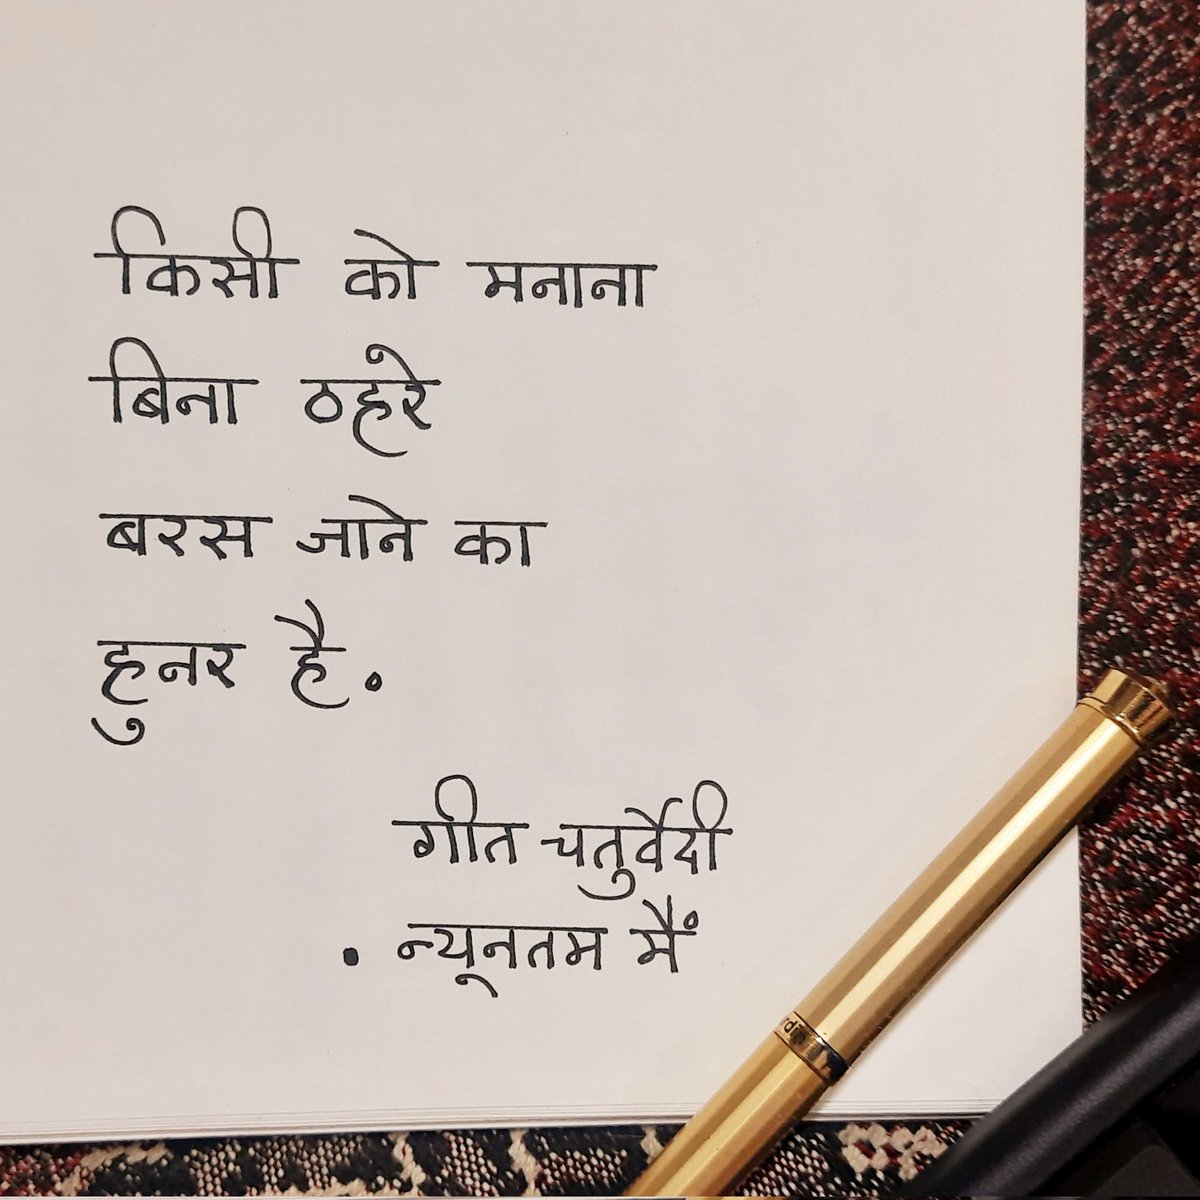 किसी को मनाना
बिना ठहरे
बरस जाने का
हुनर है.
गीत चतुर्वेदी
. न्यूनतम मैं